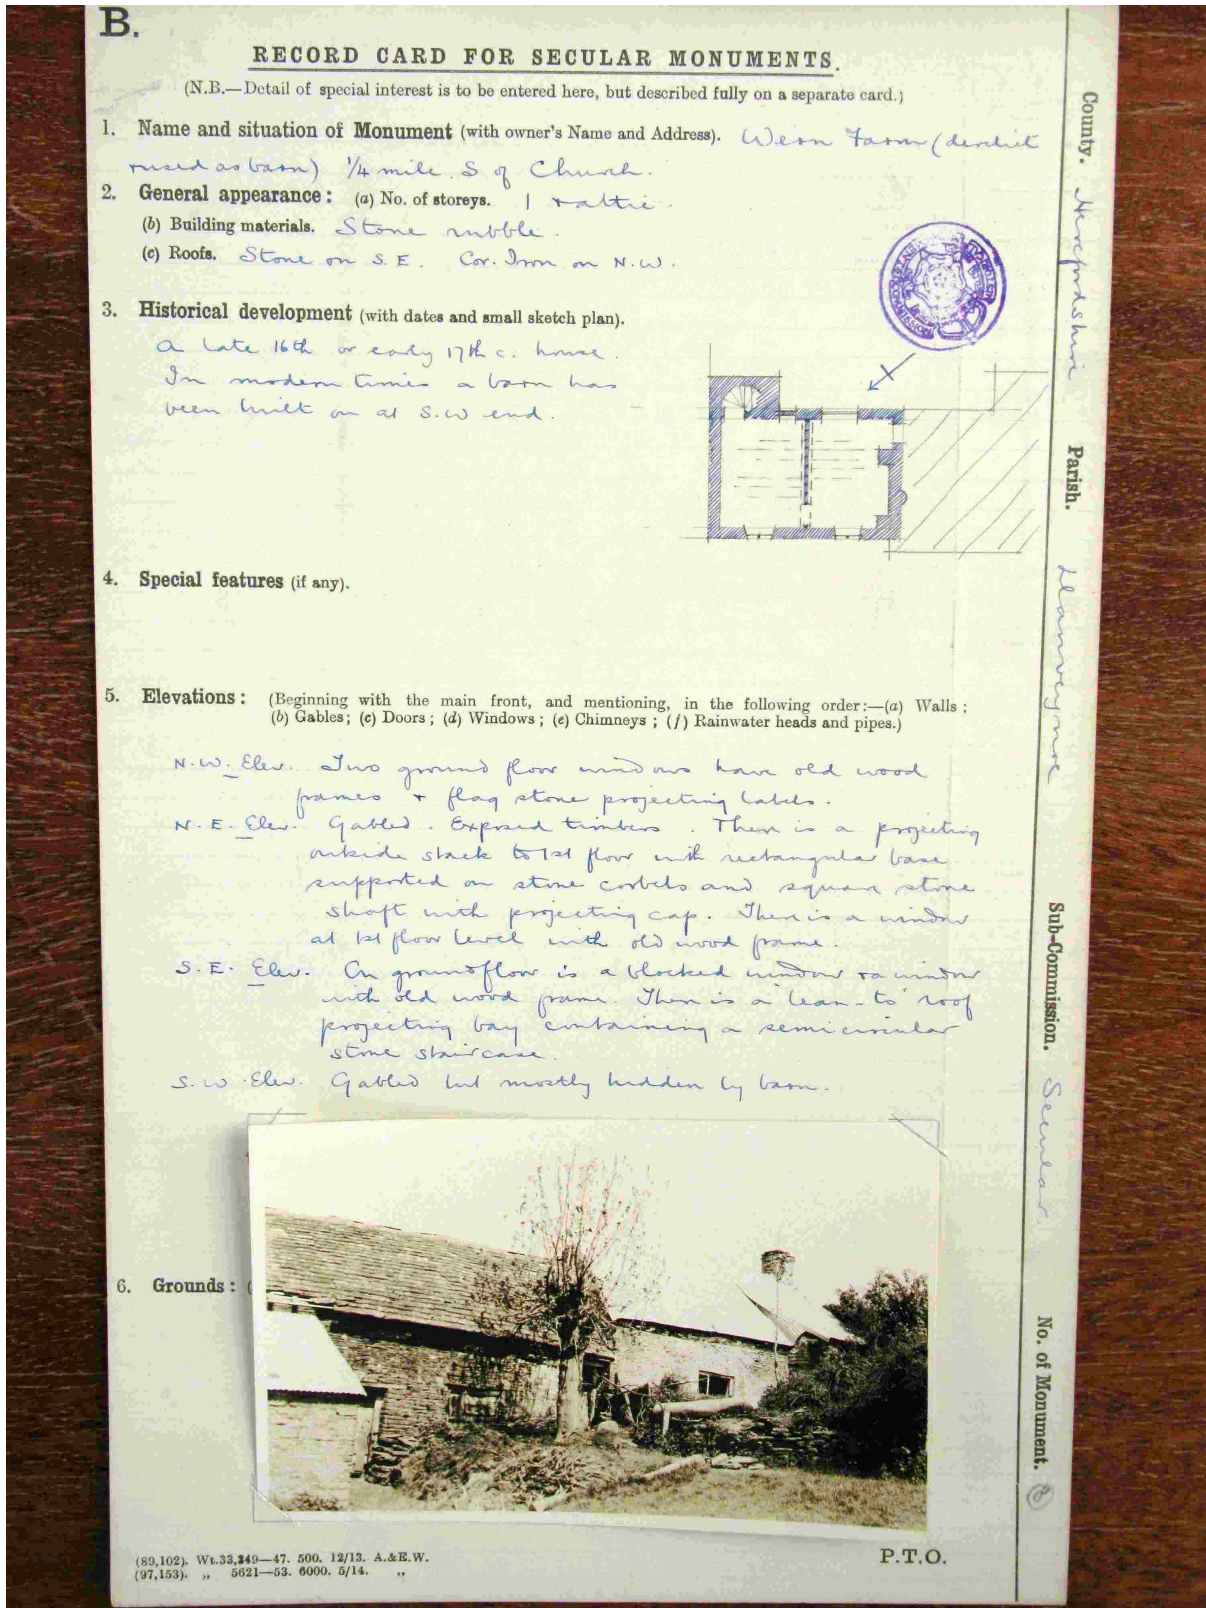 B.
RECORD CARD FOR SECULAR MONUMENTS.
(N.B.—Detail of special interest is to be entered here, but described fully on a separate card.)
1. Name and situation of Monument (with owner's Name and Address). Wern Farm (derelict
& used as barn) 1/4 mile. S of Church.
2. General appearance: (a) No. of storeys. 1 & attic.
(b) Building materials. Stone rubble.
(c) Roofs. Stone on S.E. Cor. Iron on N.W.
3. Historical development (with dates and small sketch plan).
A late 16th or early 17th c. house.
In modern times a barn has
been built on at S.W end.
4. Special features (if any).
5. Elevations: (Beginning with the main front, and mentioning, in the following order:—(a) Walls;
(b) Gables; (c) Doors; (d) Windows; (e) Chimneys; (f) Rainwater heads and pipes.)
N.W. Elev. Two ground floor windows have old wood
frames & flag stone projecting labels.
N.E. Elev. Gabled. Exposed timbers. There is a projecting
outside stack to 1st floor with rectangular base
supported on stone corbels and square stone
shaft with projecting cap. There is a window
at 1st floor level with old wood frame.
S.E. Elev. On ground floor is a blocked window & a window
with old wood frame. There is a lean-to roof
projecting bay containing a semicircular
stone staircase.
S.W. Elev. Gabled but mostly hidden by barn.
6. Grounds: (
(89,102). Wt.33,349—47. 500. 12/13. A.&E.W.
(97,153). „ 5621—53. 6000. 5/14. „
P.T.O.
County. Herefordshire
Parish. Llanveynoe
Sub-Commission. Secular
No. of Monument. (8)